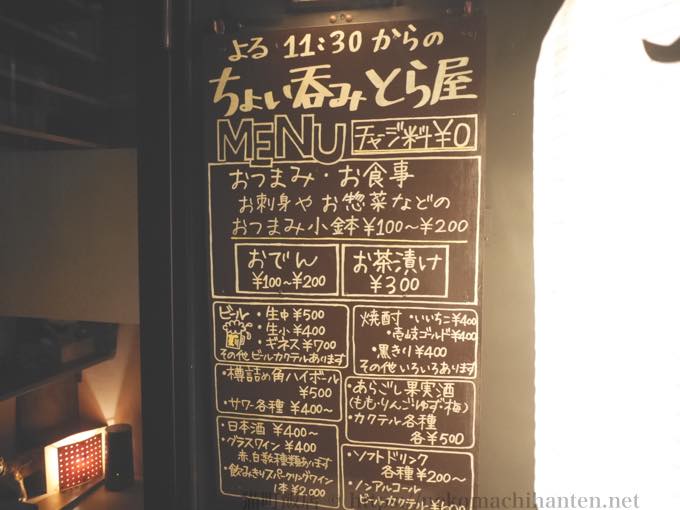 よる 11:30 からの
ちょい呑みとら屋
MENU チャージ料¥0
おつまみ・お食事
お刺身や お惣菜などの
おつまみ小鉢¥100〜¥200
おでん
¥100〜¥200
お茶漬け
¥300
ビール
・生中¥500
・生小¥400
・ギネス¥700
その他 ビールカクテルあります
焼酎・いいちこ¥400
・壱岐ゴールド¥400
・黒きり¥400
その他いろいろあります
・樽詰め角ハイボール
¥500
・サワー各種 ¥400〜
・あらごし果実酒
(もも・りんご・ゆず・梅)
・カクテル各種
各¥500
・日本酒 ¥400〜
・グラスワイン ¥400
赤、白数種類あります
・飲みきりスパークリングワイン
1本¥2,000
・ソフトドリンク
各種¥200〜
・ノンアルコール
カクテル
komachihanten.net